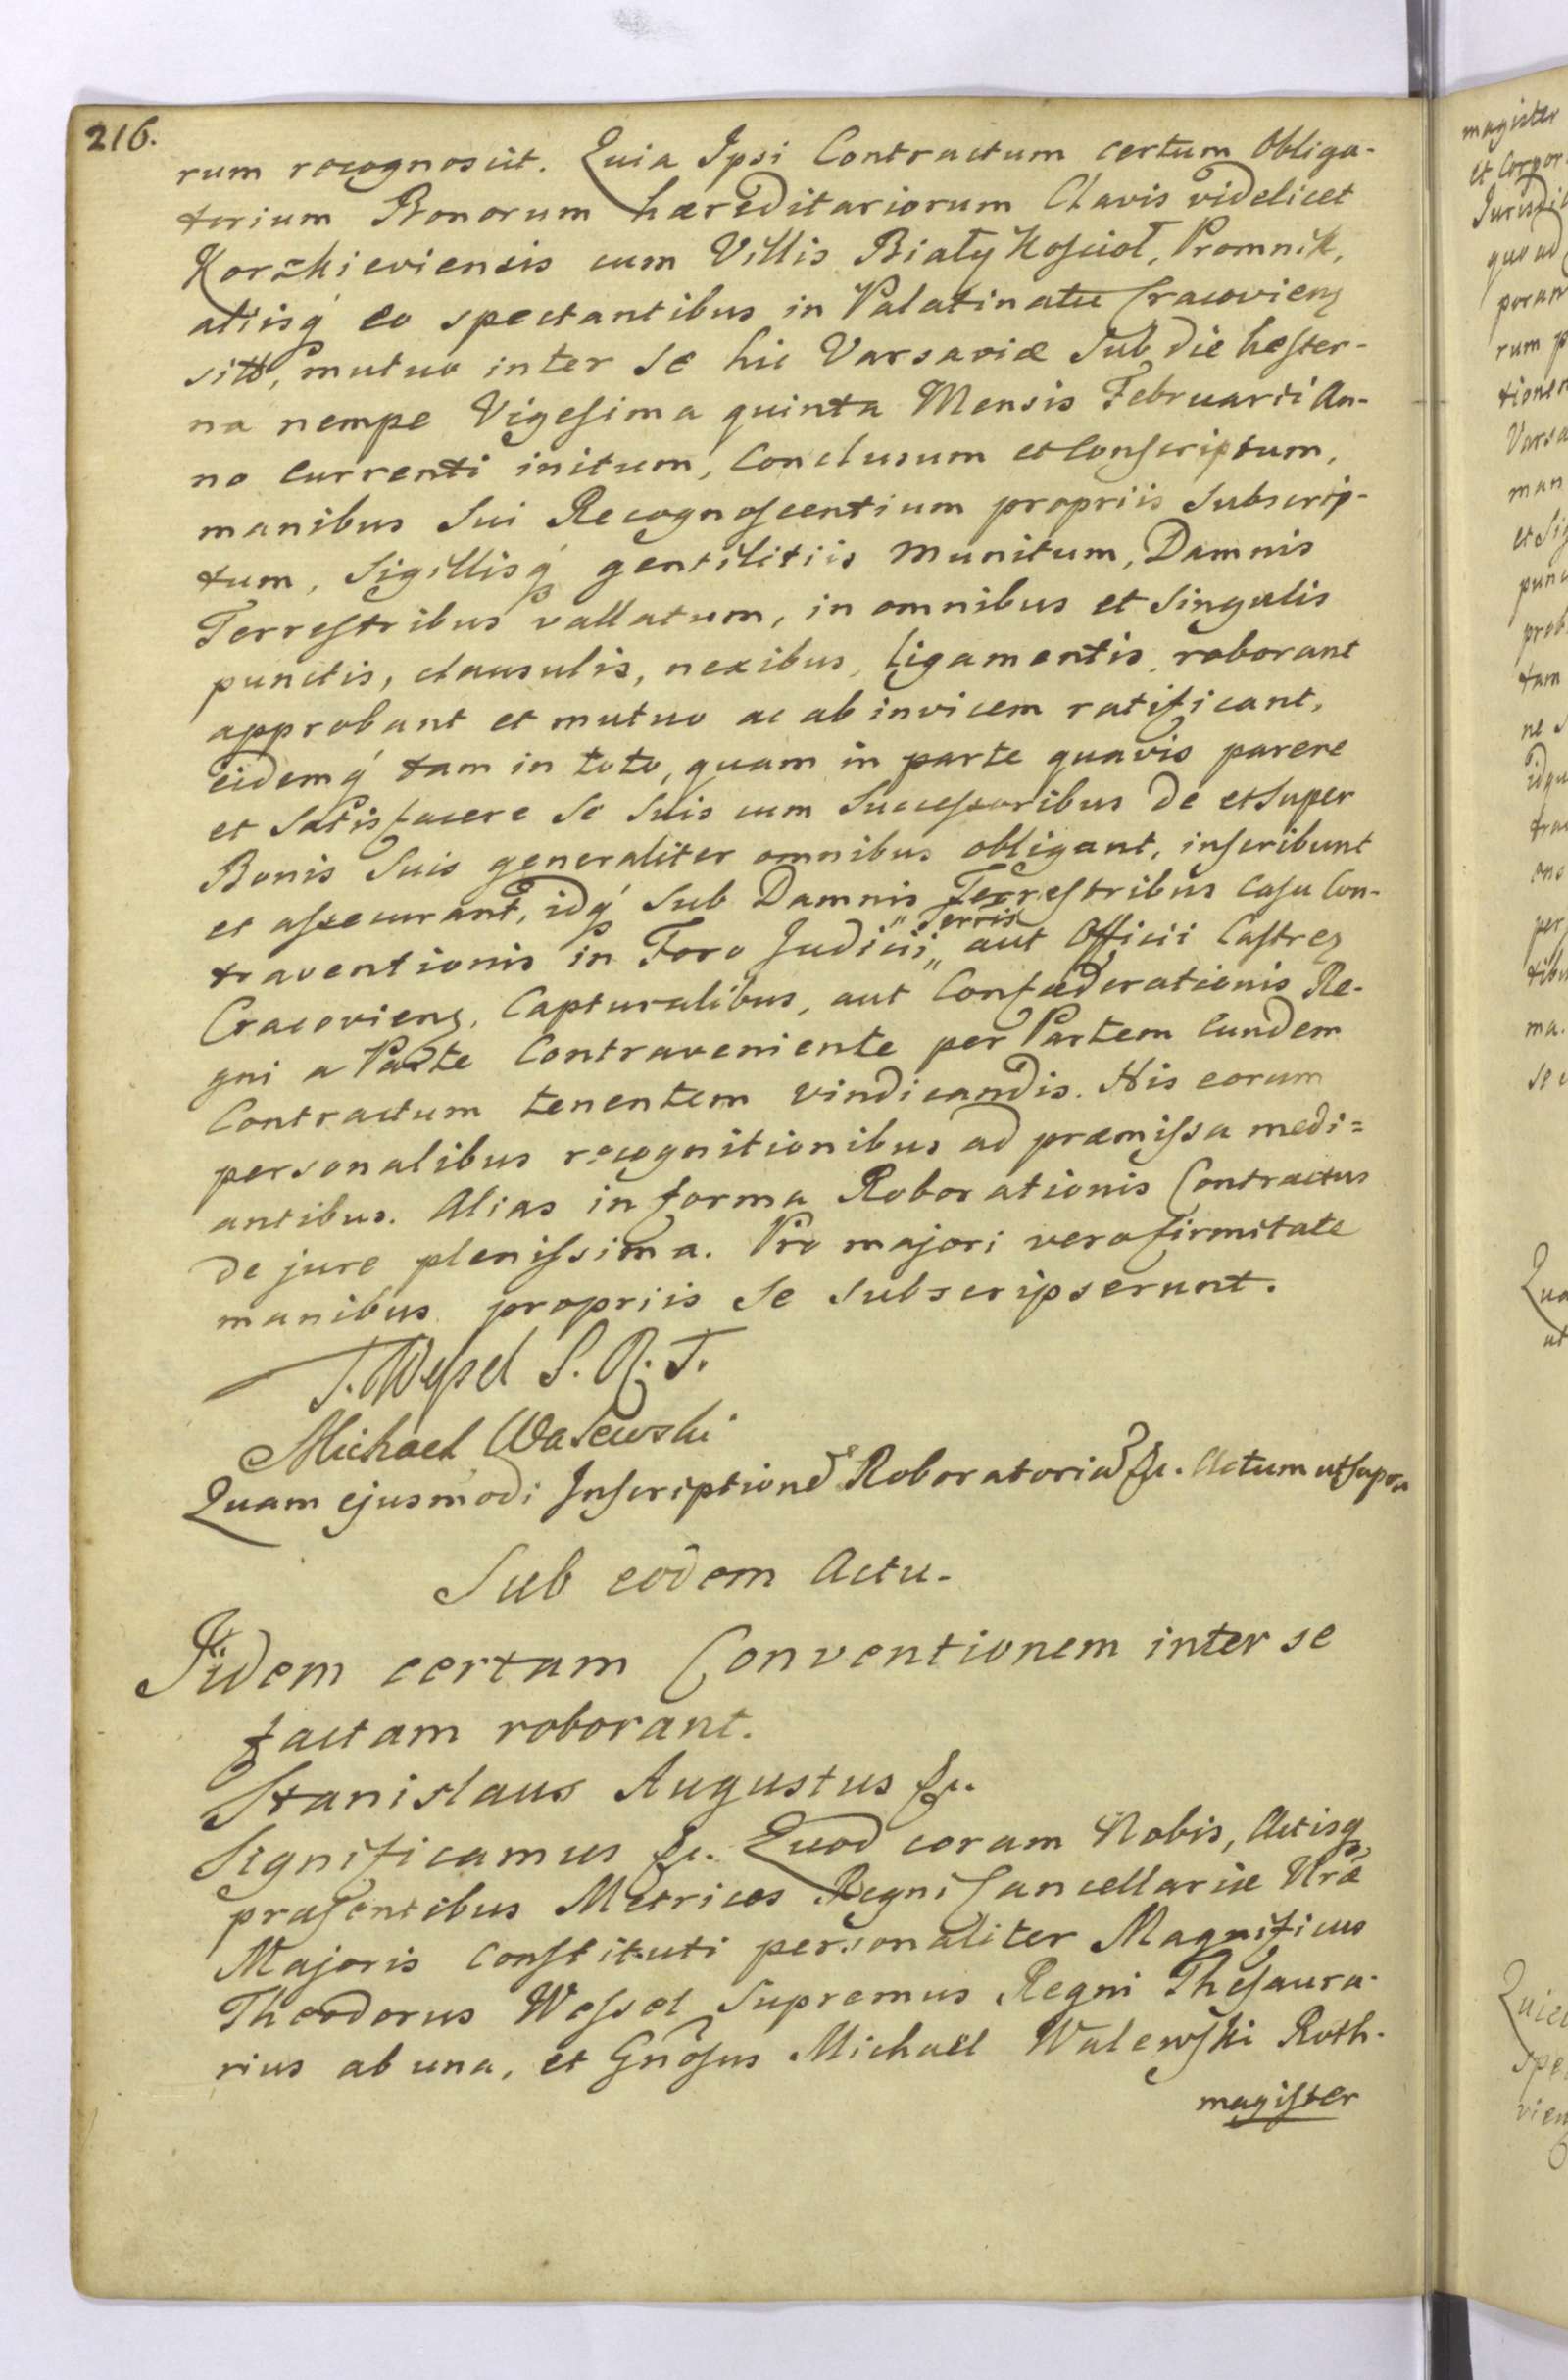 216.
rum recognoscit. Quia Ipsi Contractum certum Obliga-
torium Bonorum hæreditariorum Clavis videlicet
Korzkieviensis cum Villis Biały Kościoł, Promnik,
aliisq́ eo spectantibus in Palatinatu Cracovien̄
sitt, mutuo inter se hic Varsaviæ sub die hester-
na nempe Vigesima quinta Mensis Februarii An-
no Currenti initum, Conclusum et Conscriptum,
manibus sui Recognoscentium propriis Subscrip-
tum, Sigillisq́ gentilitiis munitum, Damnis
Terrestribus vallatum, in omnibus et singulis
punctis, clausulis, nexibus, ligamentis, roborant
approbant et mutuo ac ab invicem ratificant,
eidemq́ tam in toto, quam in parte quavis parere
et satisfacere se suis cum Successoribus de et super
Bonis Suis generaliter omnibus obligant, inscribunt
et assecurant, idq́ sub Damnis Terrestribus casu Con-
traventionis in Foro Judicii „Terris„ aut Officii Castren̄
Cracovien̄, Capturalibus, aut Confæderationis Re-
gni a Parte Contraveniente per Partem eundem
Contractum tenentem vindicandis. His eorum
personalibus recognitionibus ad præmissa medi=
antibus. Alias in forma Roborationis Contractus
de jure plenissima. Pro majori vero firmitate
manibus propriis se subscripserunt.
T. Wessel S. R. T.
Michael Walewski
Quam ejusmodi Inscriptione͂ Roboratoria͂ &c. Actum ut supra
Sub eodem Actu.
Iidem certam Conventionem inter se
factam roborant.
Stanislaus Augustus &c.
Significamus &c. Quod coram Nobis, Actisq́
præsentibus Metrices Regni Cancellariæ Nræ
Majoris constituti personaliter Magnificus
Theodorus Wessel Supremus Regni Thesaura-
rius ab una, et Gn̄osus Michaël Walewski Roth-
magister